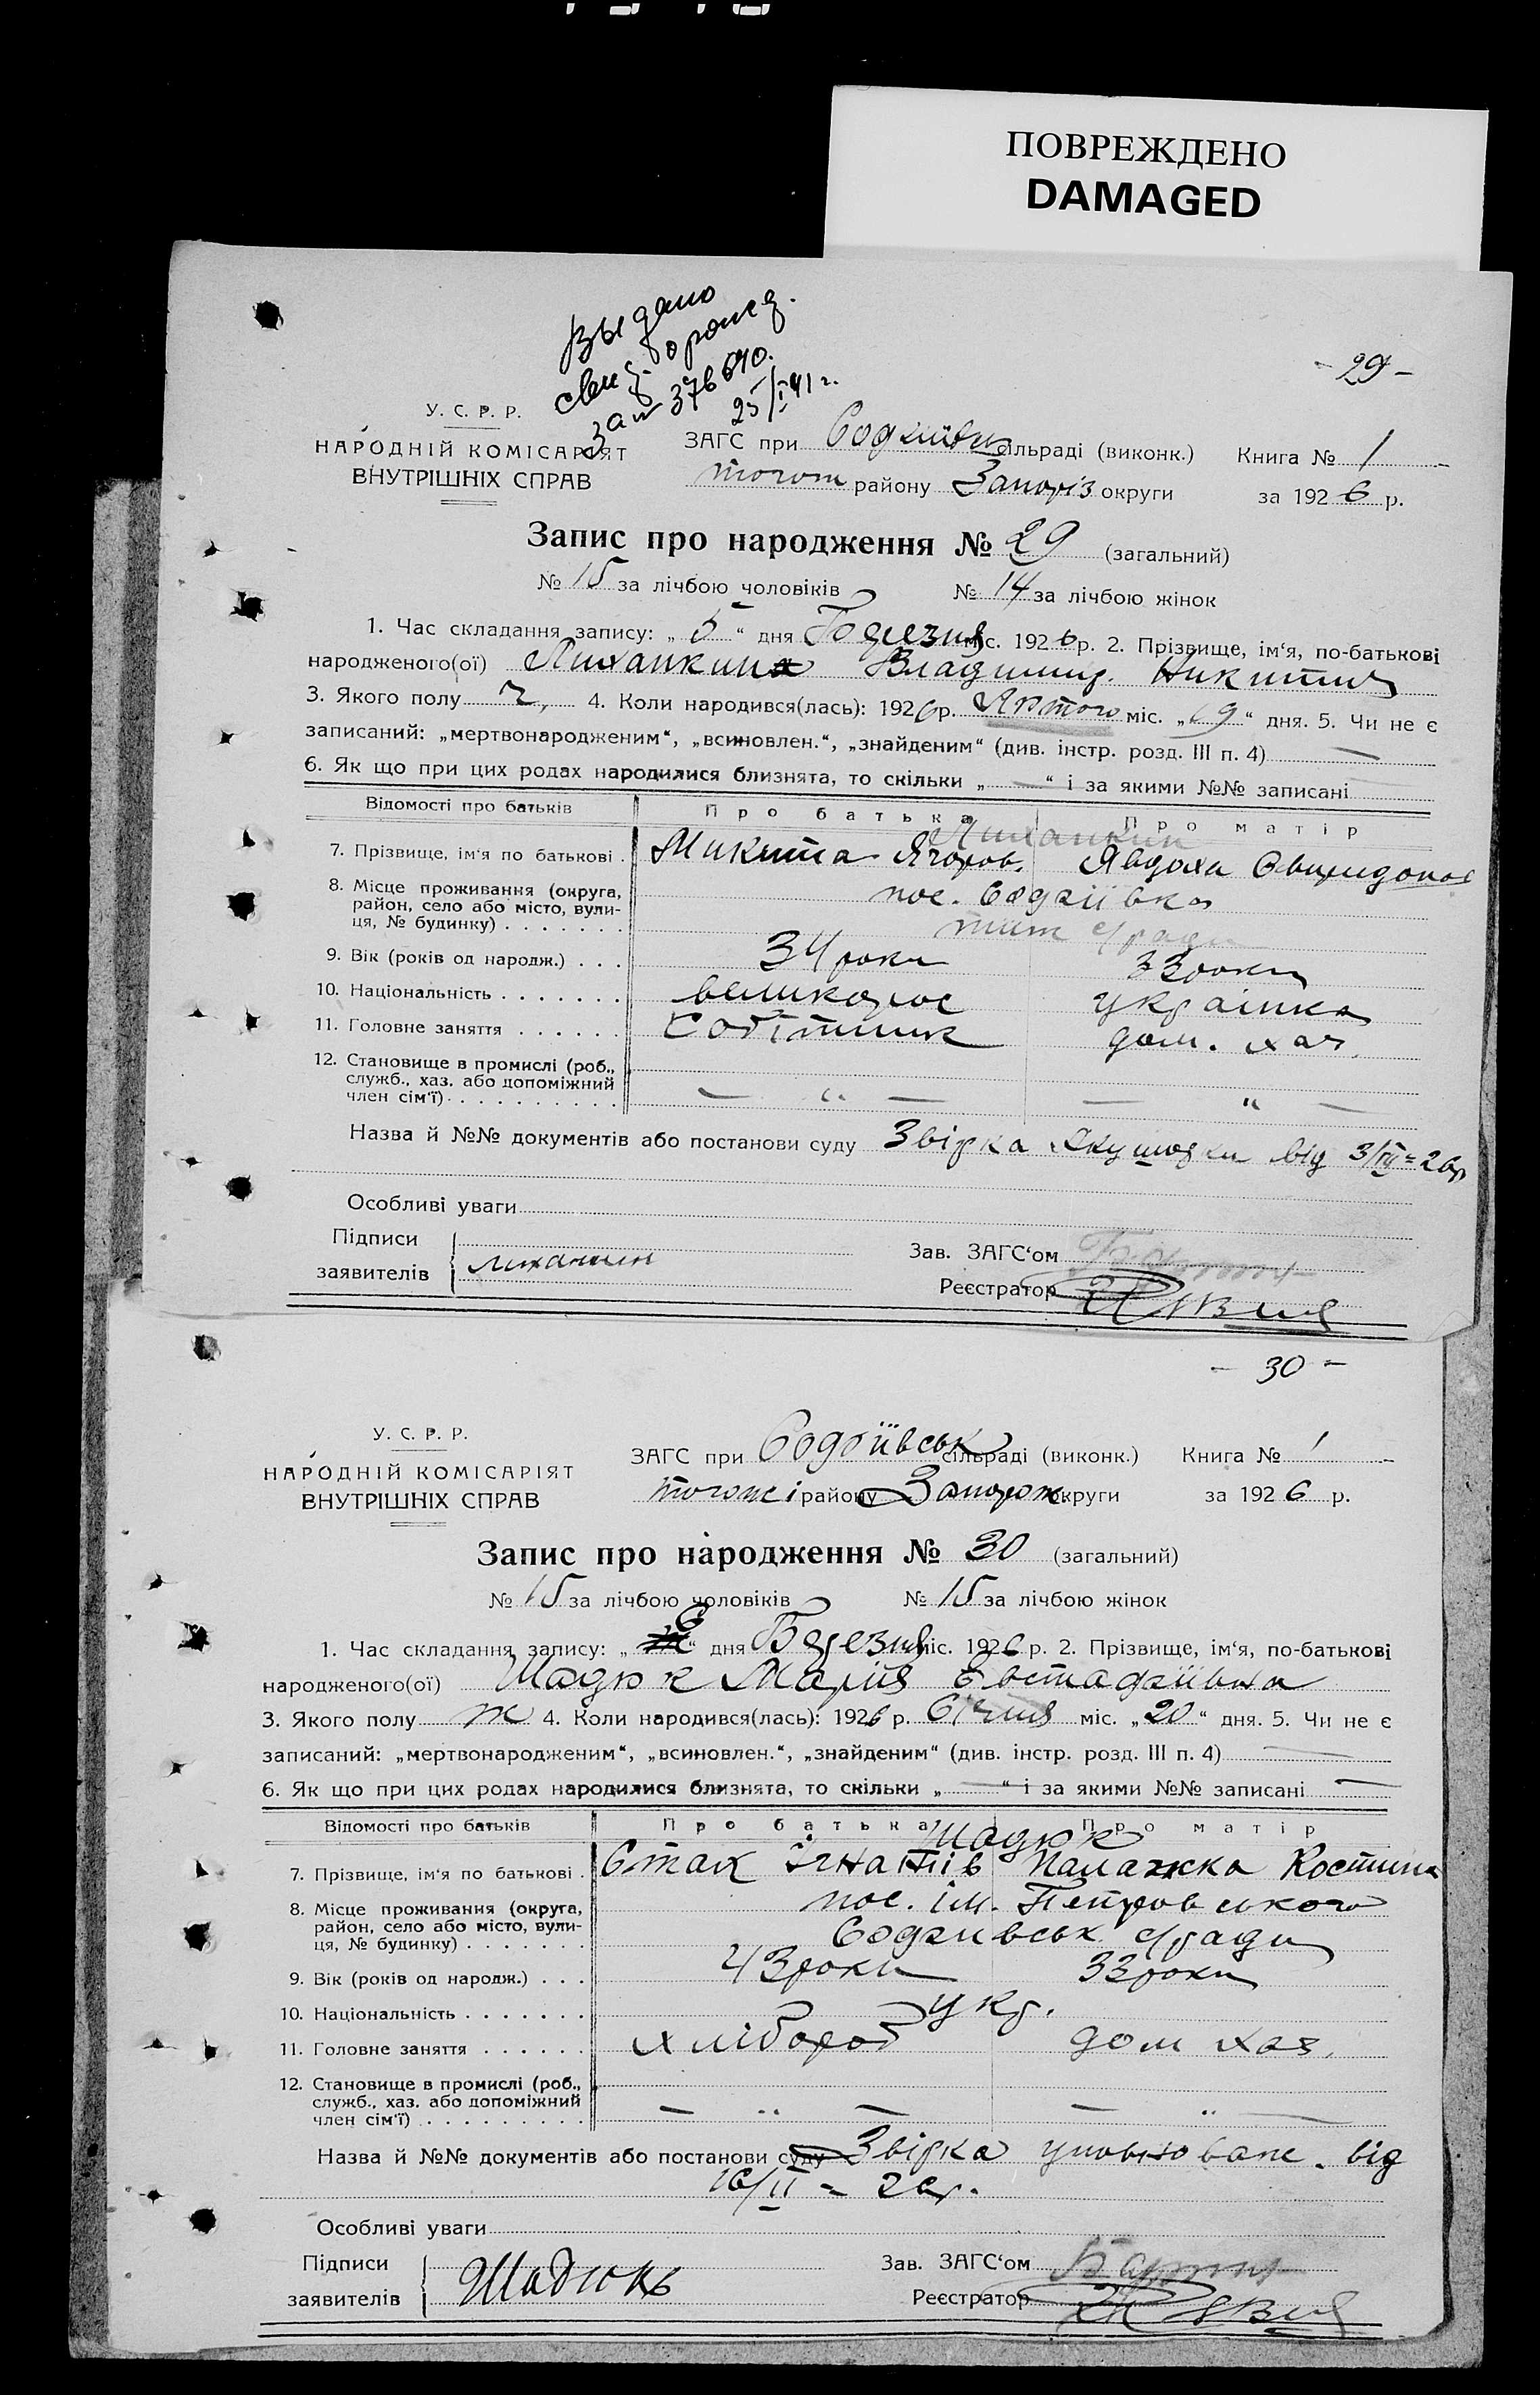 ПОВРЕЖДЕНО
DAMAGED
Выдано
свид. о рожд.
за № 376640.
25/I 41 г.
- 29 -
У. С. Р. Р.
НАРОДНІЙ КОМІСАРІЯТ
ВНУТРІШНІХ СПРАВ
ЗАГС при сільраді (виконк.) Книга № 1
району Запоріз округи за 1926 р.
Запис про народження № 29 (загальний)
№ 15 за лічбою чоловіків № 14 за лічбою жінок
1. Час складання запису: „5“ дня Березня міс. 1926 р. 2. Прізвище, ім‘я, по-батькові
народженого(ої) Лиханкин Владимир Никитич
3. Якого полу ч, 4. Коли народився(лась): 1926 р. Лютого міс. „19“ дня. 5. Чи не є
записаний: „мертвонародженим“, „всиновлен.“, „знайденим“ (див. інстр. розд. III п. 4) —
6. Як що при цих родах народилися близнята, то скільки „—“ і за якими №№ записані
Відомості про батьків Про батька Про матір
Лиханкин
7. Прізвище, ім‘я по батькові . Микита Ягоров. Явдоха Свиридонов
8. Місце проживання (округа, район, село або місто, вулиця, № будинку) . . . . . . . пос.
с/ради
9. Вік (років од народж.) . . . 34 роки 33 роки
10. Національність . . . . . . . великорос українка
11. Головне заняття . . . . . дом. хаз.
12. Становище в промислі (роб.,
служб., хаз. або допоміжний
член сім‘ї) . . . . . . . . . . — “ — — “ —
Назва й №№ документів або постанови суду Звірка Акушорки від 3/III = 26 р
Особливі уваги
Підписи
заявителів Лиханкин
Зав. ЗАГС‘ом
Реєстратор
- 30 -
У. С. Р. Р.
НАРОДНІЙ КОМІСАРІЯТ
ВНУТРІШНІХ СПРАВ
ЗАГС при сільраді (виконк.) Книга № 1
району Запорож округи за 1926 р.
Запис про народження № 30 (загальний)
№ 15 за лічбою чоловіків № 15 за лічбою жінок
1. Час складання запису: „6“ дня Березня міс. 1926 р. 2. Прізвище, ім‘я, по-батькові
народженого(ої) Шадюк Марія Євстадзіївна
3. Якого полу ж 4. Коли народився(лась): 1926 р. Січня міс. „20“ дня. 5. Чи не є
записаний: „мертвонародженим“, „всиновлен.“, „знайденим“ (див. інстр. розд. III п. 4) —
6. Як що при цих родах народилися близнята, то скільки „—“ і за якими №№ записані —
Відомості про батьків Про батька Про матір
Шадюк
7. Прізвище, ім‘я по батькові . Стах Ігнатів Палажка Костина
8. Місце проживання (округа,
район, село або місто, вули-
ця, № будинку) . . . . . . . пос. ім. Петровського
с/ради
9. Вік (років од народж.) . . . 43 роки 33 роки
10. Національність . . . . . . . укр.
11. Головне заняття . . . . . . хлібороб дом хаз.
12. Становище в промислі (роб.,
служб., хаз. або допоміжний
член сім‘ї) . . . . . . . . . . — “ — — “ —
Назва й №№ документів або постанови суду Звірка уповноваж. від
16/II = 26 р.
Особливі уваги
Підписи
заявителів Шадюкъ
Зав. ЗАГС‘ом
Реєстратор